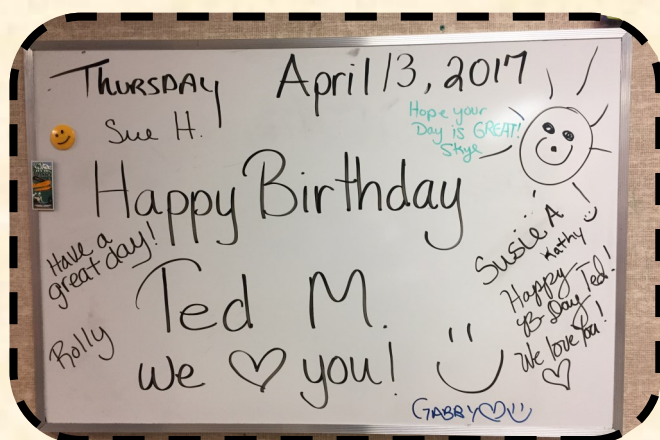 THURSDAY April 13, 2017
Sue H.
Hope your
Day is GREAT!
Skye
Happy Birthday
Have a
great day!
Ted M.
we ♡ you!
Rolly
Susie A
Kathy
Happy
B-Day Ted!
We love you!
♡
GABBY♡